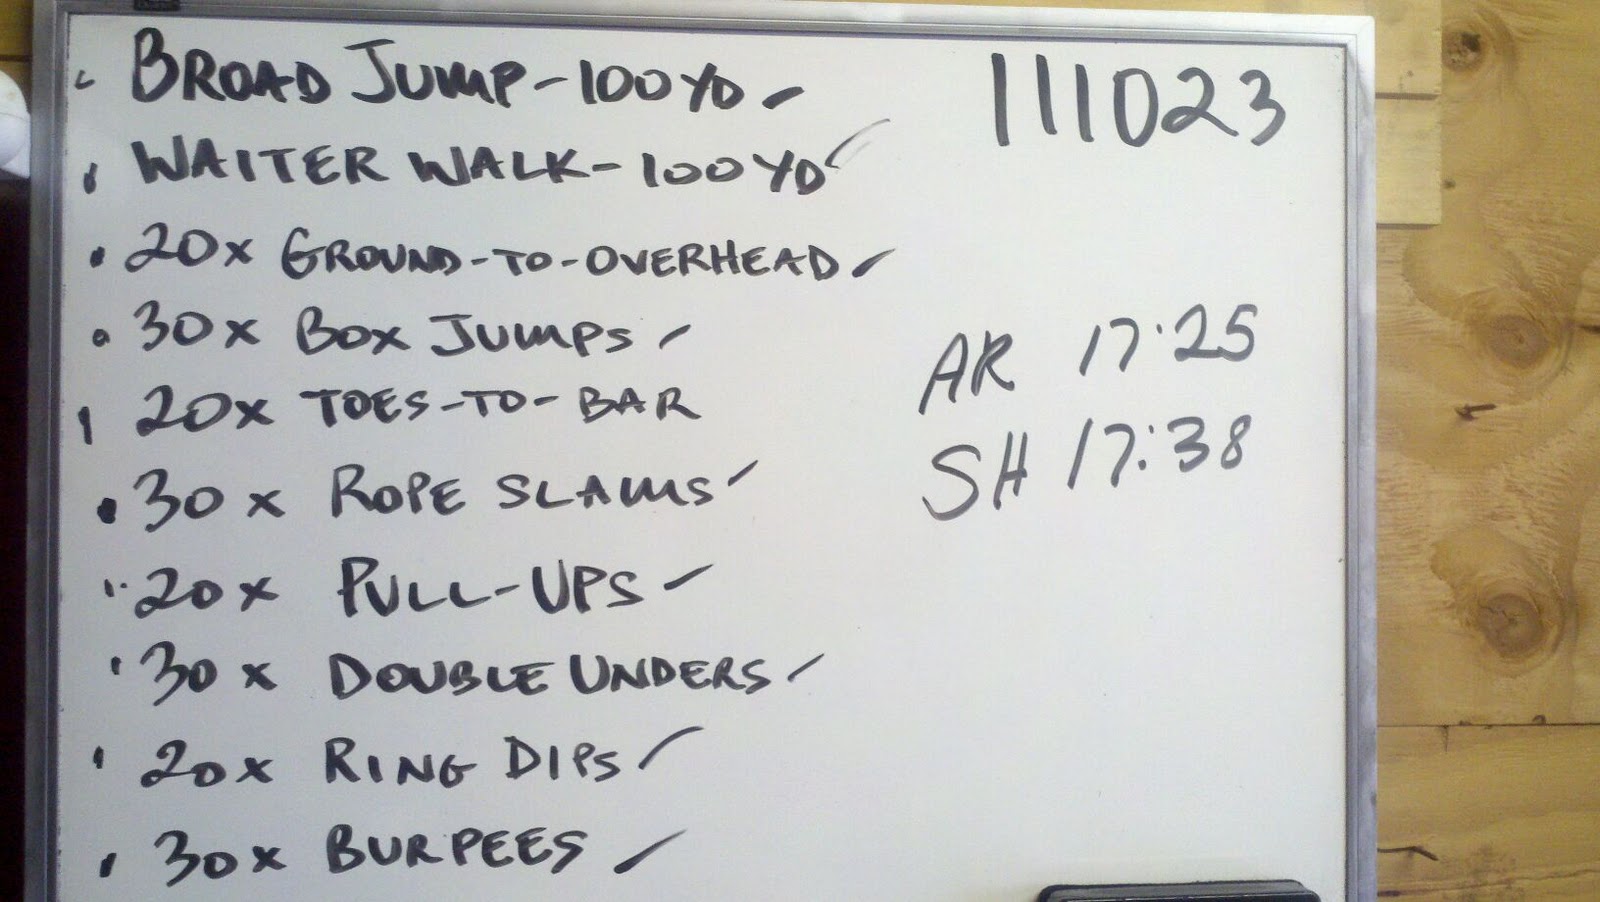 BROAD JUMP - 100 YD
WAITER WALK - 100 YD
20x GROUND-TO-OVERHEAD
30x BOX JUMPS
20x TOES-TO-BAR
30x ROPE SLAMS
20x PULL-UPS
30x DOUBLE UNDERS
20x RING DIPS
30x BURPEES
111023
AR 17:25
SH 17:38